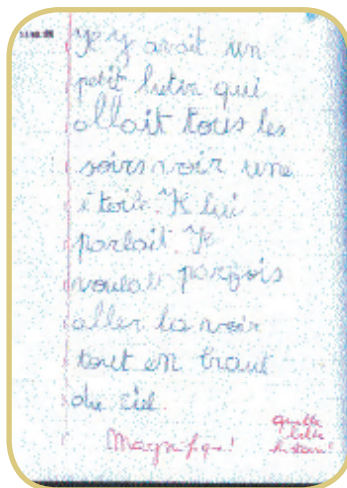 Il y avait un
petit lutin qui
allait tous les
soirs voir une
étoile. Il lui
parlait. Il
voulait parfois
aller la voir
tout en haut
du ciel
Magnifique!
Quelle
belle
histoire!